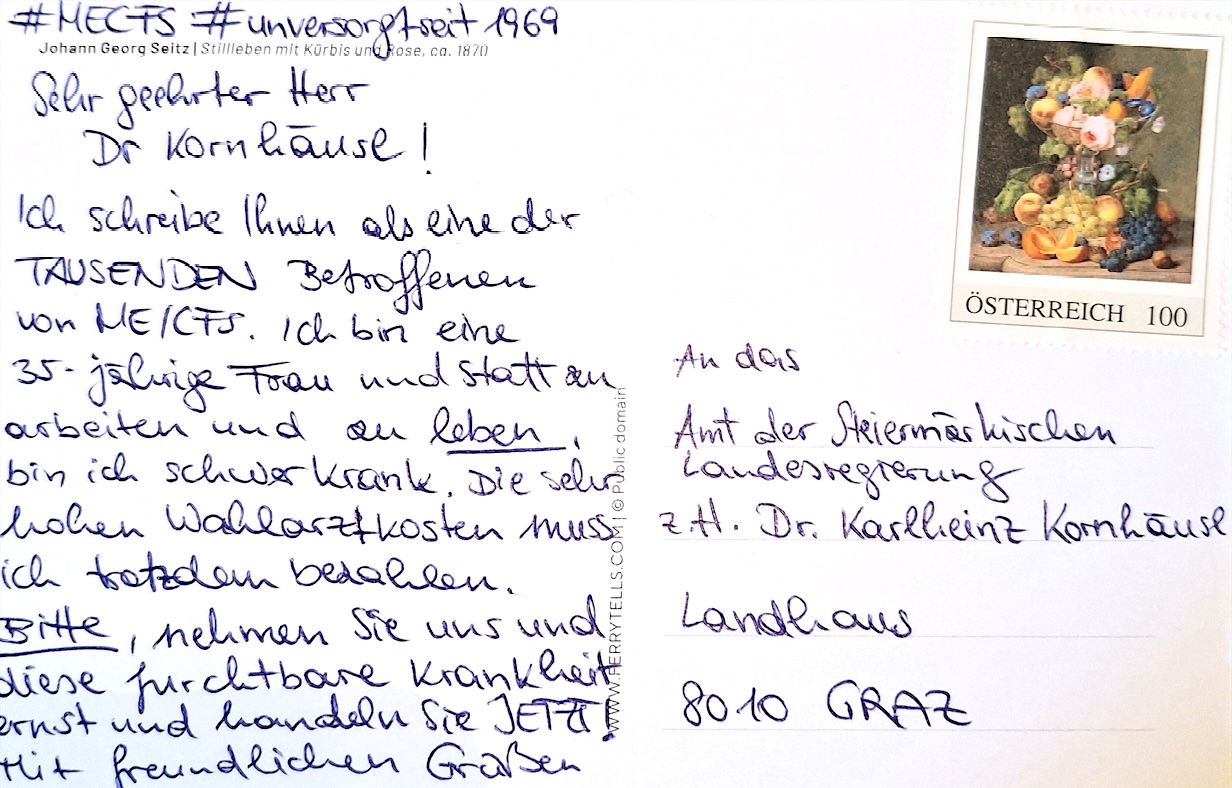 #MECFS #unversorgtseit 1969
Johann Georg Seitz | Stillleben mit Kürbis und Rose, ca. 1870
Sehr geehrter Herr
Dr Kornhäusl!
Ich schreibe Ihnen als eine der
TAUSENDEN Betroffenen
von ME/CFS. Ich bin eine
35-jährige Frau und statt zu
arbeiten und zu leben,
bin ich schwer krank. Die sehr
hohen Wahlarztkosten muss
ich trotzdem bezahlen.
Bitte, nehmen Sie uns und
diese furchtbare Krankheit
ernst und handeln Sie JETZT!
Mit freundlichen Grüßen
WWW.FERRYTELLS.COM | © Public domain
ÖSTERREICH 100
An das
Amt der Steiermärkischen
Landesregierung
z.H. Dr. Karlheinz Kornhäusl
Landhaus
8010 GRAZ